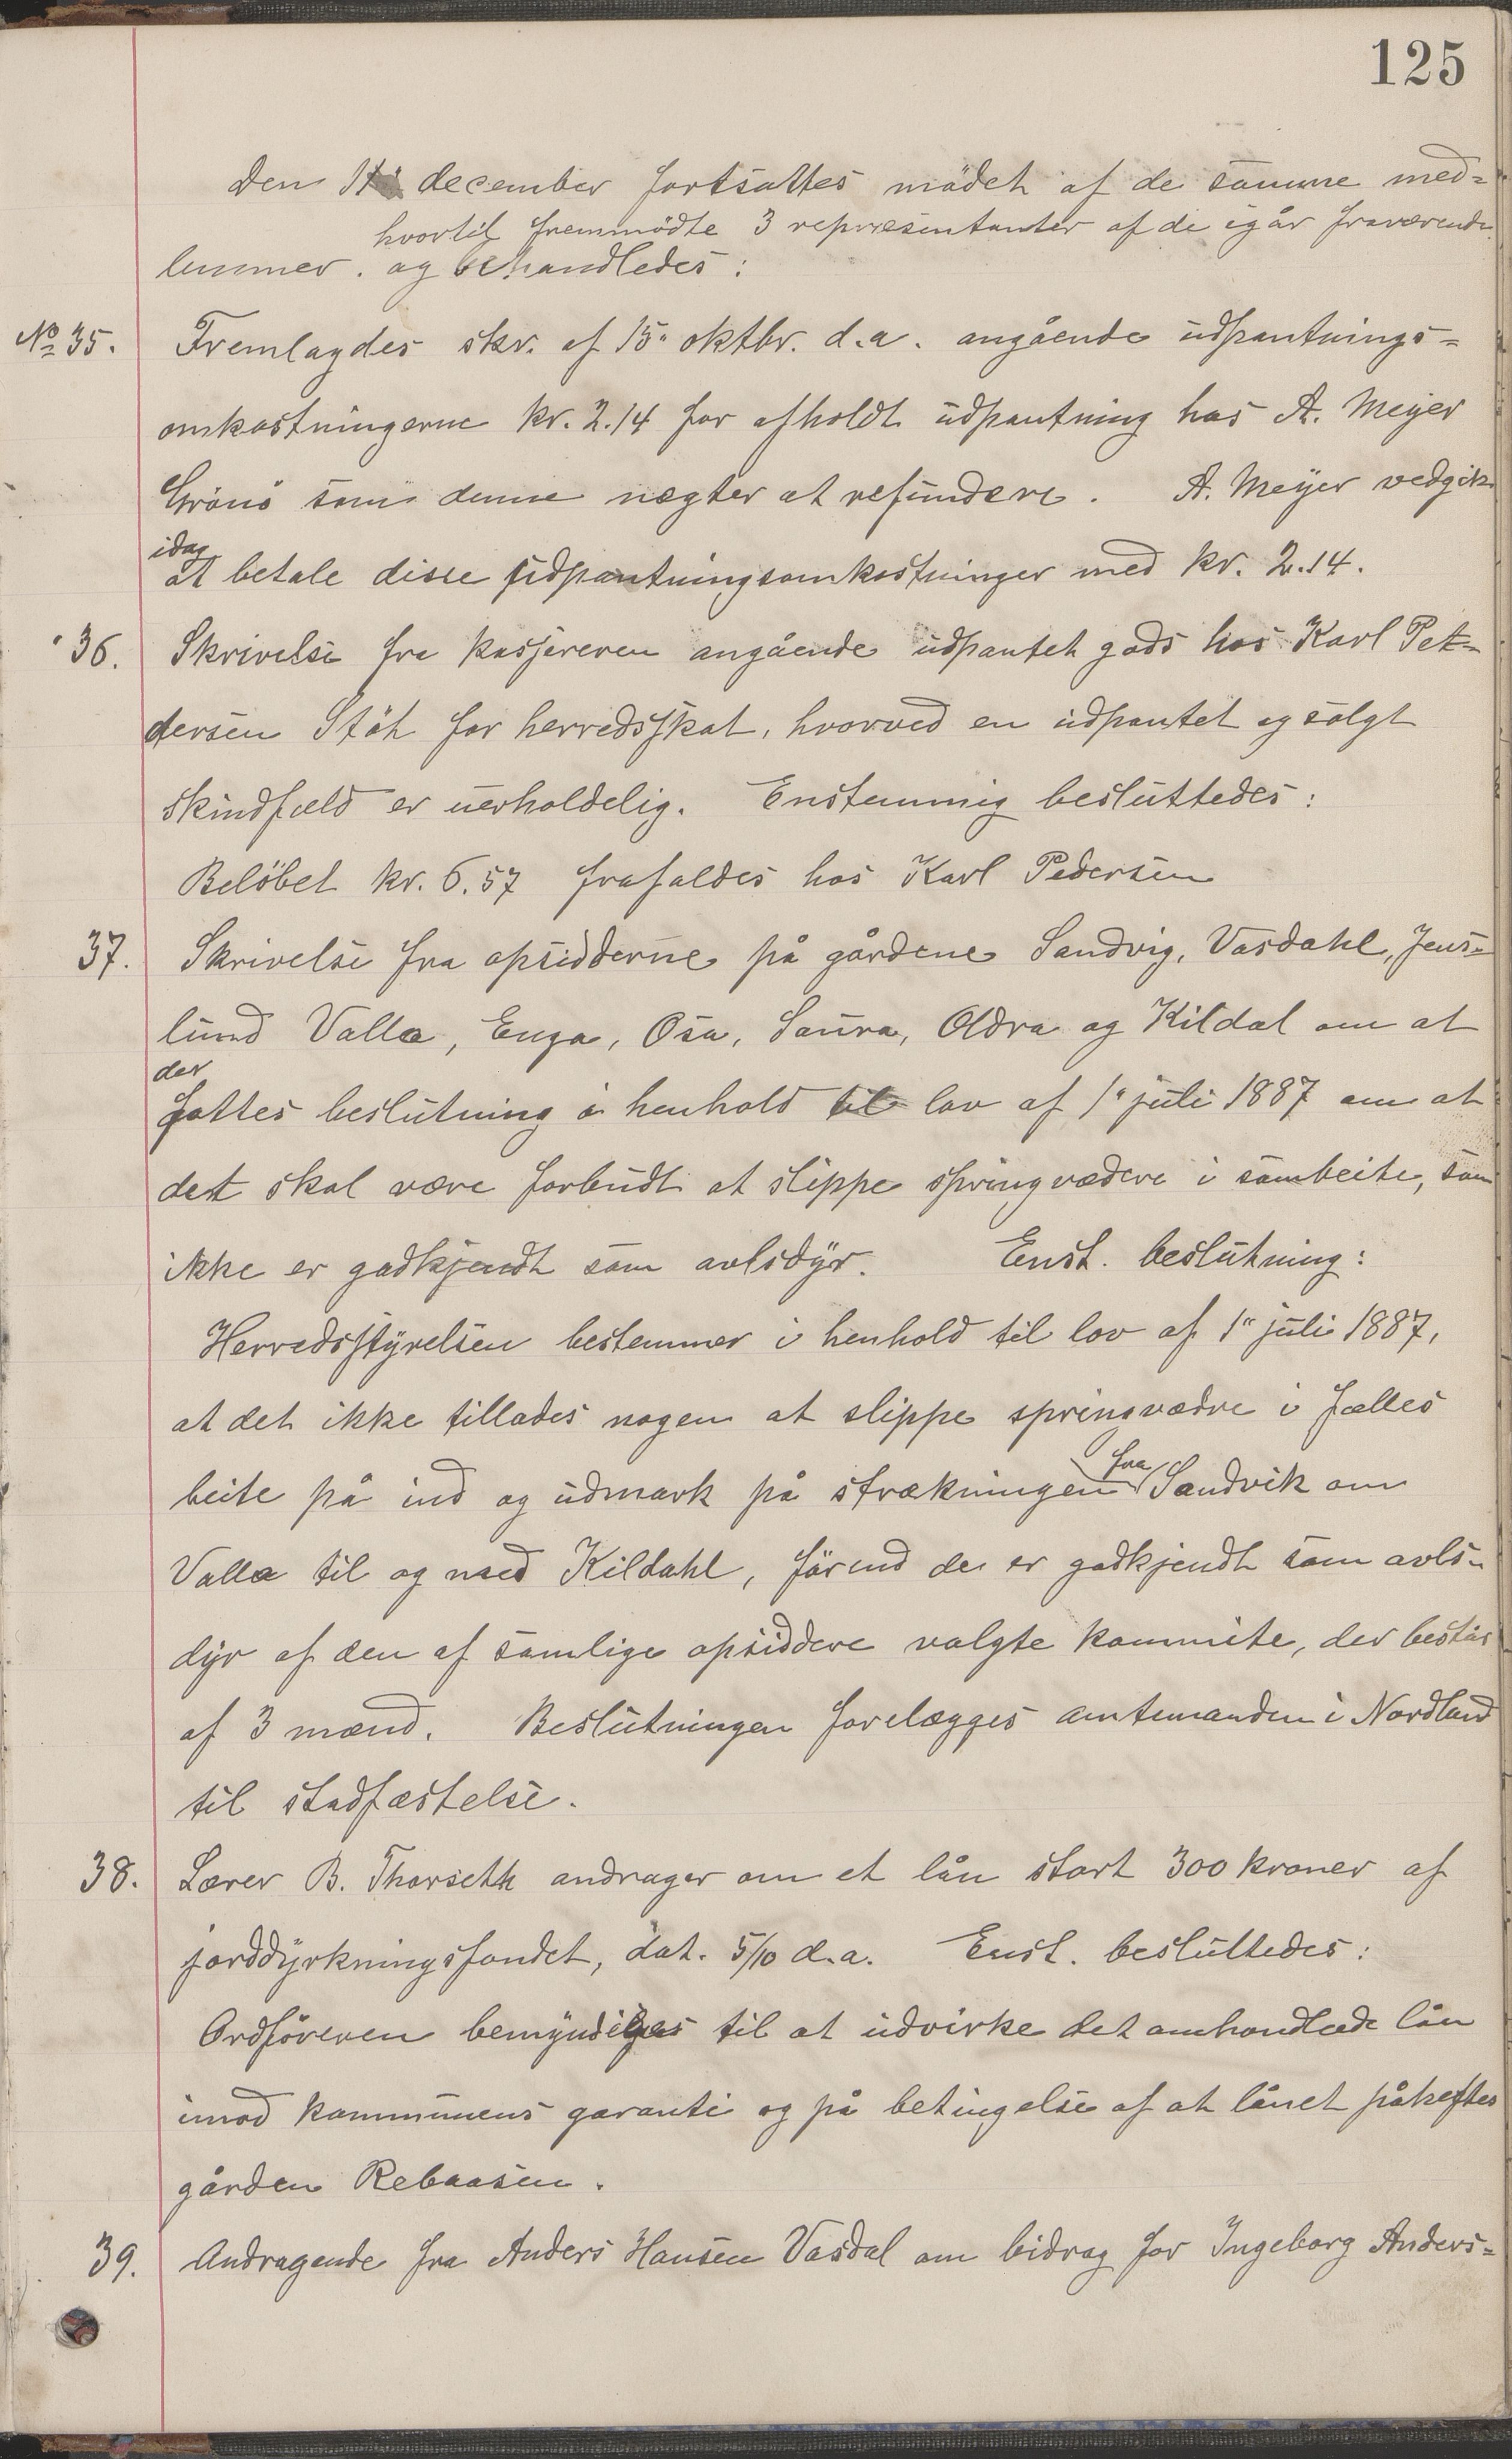 125
Den 11 december fortsattes mödet af de samme med=
hvortil fremmödte 3 repræsentanter af de igår fraværende
lemmer. og behandledes:
No 35. Fremlagdes skr. af 15" oktbr. d.a. angående udpantnings=
omkostningerne kr. 2.14 for afholdt udpantning hos A. Meyer
Grönö som denne nægter at refundere. A. Meyer vedgik
idag
at betale disse udpantningsomkostninger med kr. 2.14.
" 36. Skrivelse fra kasjereren angående udpantet gods hos Karl Pe=
dersen Stöt for herredsskat, hvorved en udpantet og solgt
skindfæld er uerholdelig. Enstemmig besluttedes:
Belöbet kr. 6.57 frafaldes hos Karl Pedersen
37. Skrivelse fra opsidderne på gårdene Sandvig, Vasdahl, Jens=
lund Valla, Enga, Osa, Saura, Oldra og Kildal om at
der
fattes beslutning i henhold til lov af 1" juli 1887 om at
det skal være forbudt at slippe springvædere i sambeite, som
ikke er godkjendt som avlsdyr. Enst. beslutning:
Herredsstyrelsen bestemmer i henhold til lov af 1" juli 1887,
at det ikke tillades nogen at slippe springvædre i fælles
fra
beite på ind og udmark på strækningen Sandvik om
Valla til og med Kildahl, förend de er godkjendt som avls=
dyr af den af samlige opsiddere valgte kommite, der består
af 3 mænd. Beslutningen forelægges amtmanden i Nordland
til stadfæstelse.
38. Lærer B. Thorseth andrager om et lån stort 300 kroner af
jorddyrkningsfondet, dat. 5/10 d.a. Enst. besluttedes:
Ordföreren bemyndiges til at udvirke det omhandlede lån
imod kommunens garanti og på betingelse af at lånet påheftes
gården Rebaasen.
39. Andragende fra Anders Hansen Vasdal om bidrag for Ingeborg Anders=